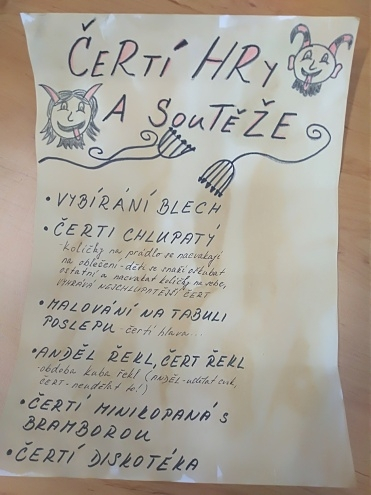 ČERTÍ HRY
A SOUTĚŽE
• VYBÍRÁNÍ BLECH
• ČERTI CHLUPATÝ
- kolíčky na prádlo se nacvakají
na oblečení - děti se snaží oškubat
ostatní a nacvakat kolíčky na sebe,
VYHRÁVÁ NEJCHLUPATĚJŠÍ ČERT
• MALOVÁNÍ NA TABULI
POSLEPU - čertí hlava...
• ANDĚL ŘEKL, ČERT ŘEKL
- obdoba kuba řekl (ANDĚL - udělat cvik,
ČERT - neudělat to!)
• ČERTÍ MINIKOPANÁ S
BRAMBOROU
• ČERTÍ DISKOTÉKA